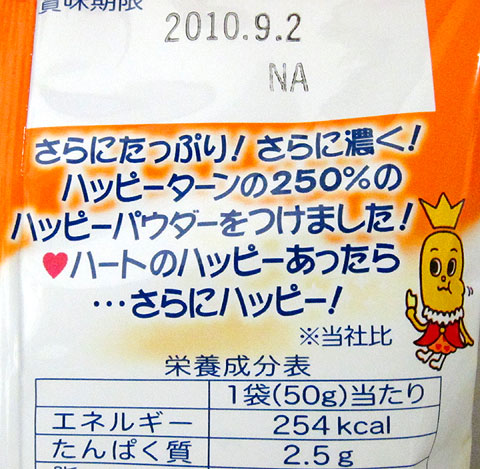 賞味期限
2010.9.2
NA
さらにたっぷり! さらに濃く!
ハッピーターンの250%の
ハッピーパウダーをつけました!
♥ハートのハッピーあったら
…さらにハッピー!
※当社比
栄養成分表
1袋(50g)当たり
エネルギー 254kcal
たんぱく質 2.5g